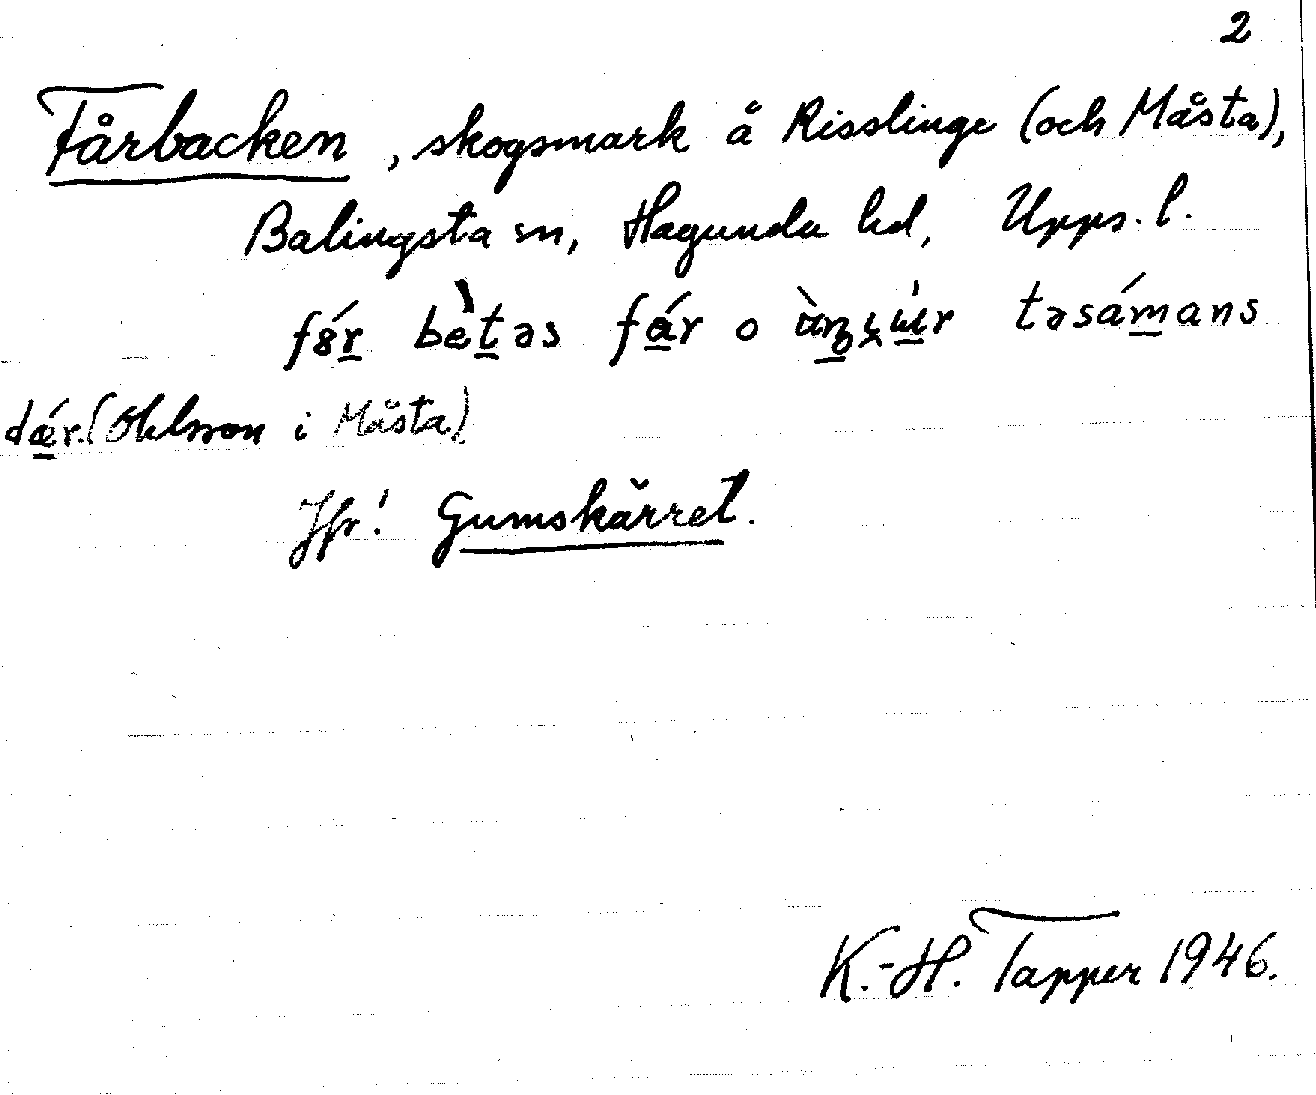 2
Fårbacken, skogsmark å Risslinge (och Måsta),
Balingsta sn, Hagunda hd, Upps. l.
bètəs fár o təsámans
dǽr. (Ohlsson i Måsta)
Jfr! Gumskärret.
K.-H. Tapper 1946.